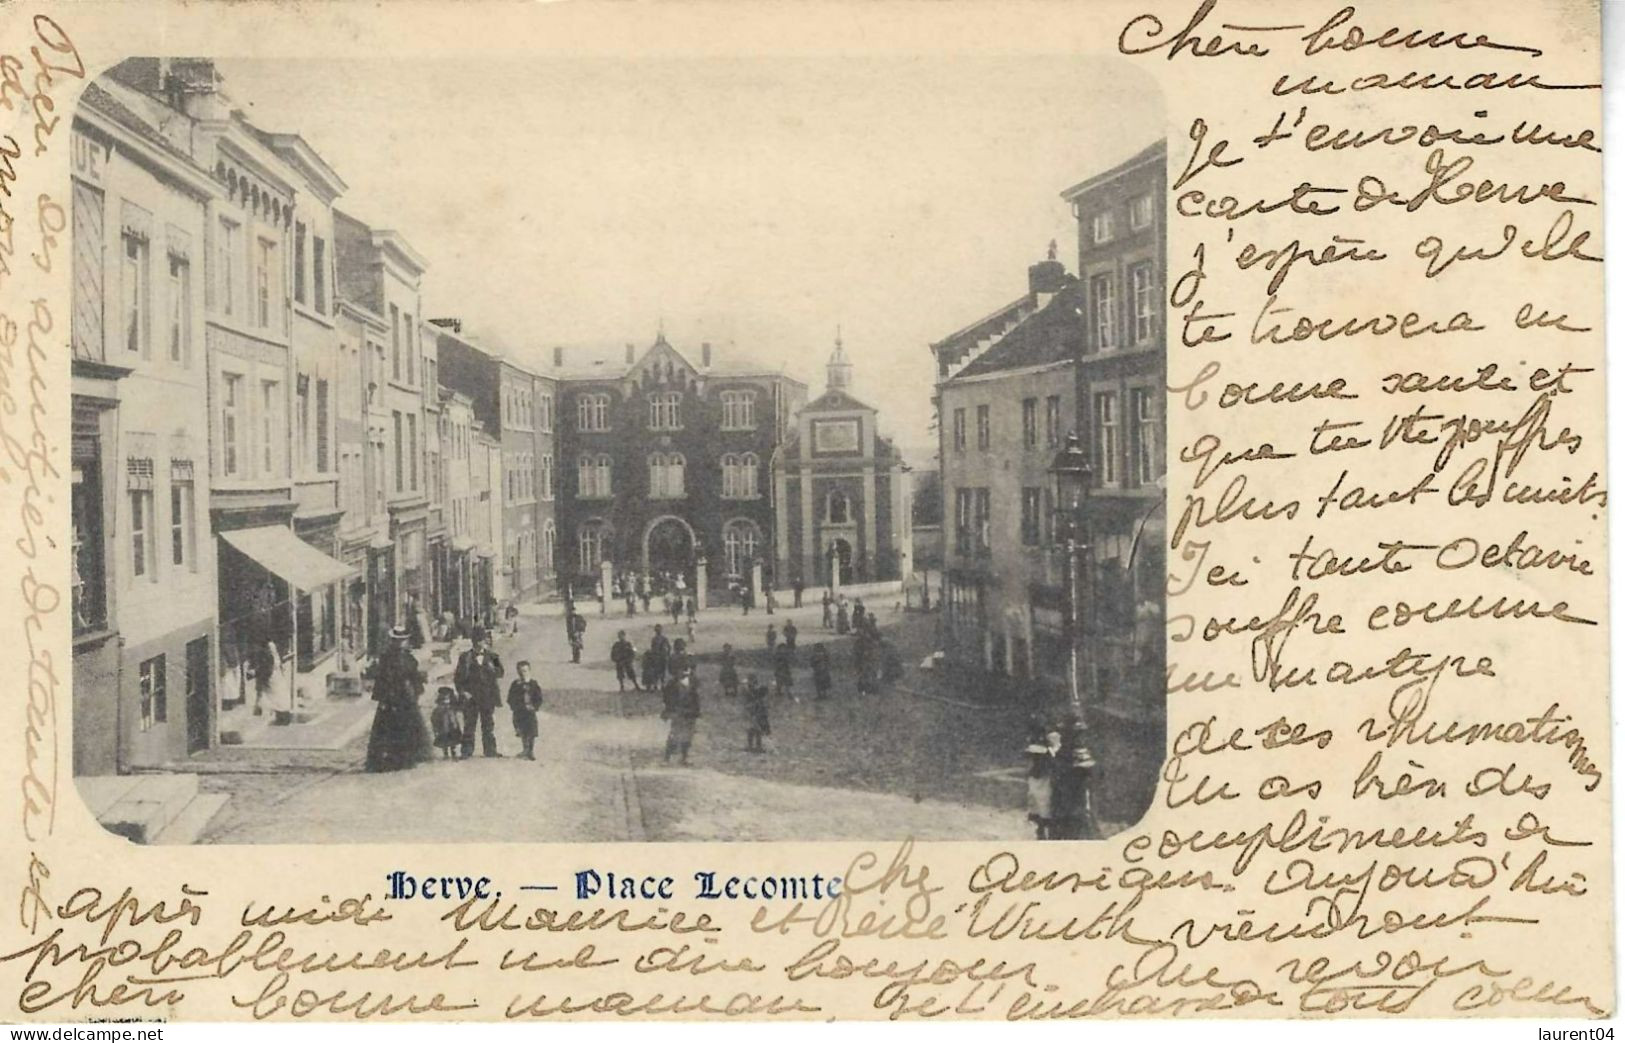 Chère bonne
maman
Je t'envoie une
carte de Herve
j'espère qu'elle
te trouvera en
bonne santé et
que tu ne souffres
plus tant les nuits.
Ici tante Octavie
souffre comme
un martyre
de ses rhumatismes
Tu as bien des
compliments de
Chg Aujourd'hui
après midi Maurice et René Wuth viendront
probablement me dire bonjour Au revoir
chère bonne maman, je t'embrasse de tout coeur
Bien des amitiés de tante et
de mon oncle
UE
Herve. — Place Lecomte
laurent04